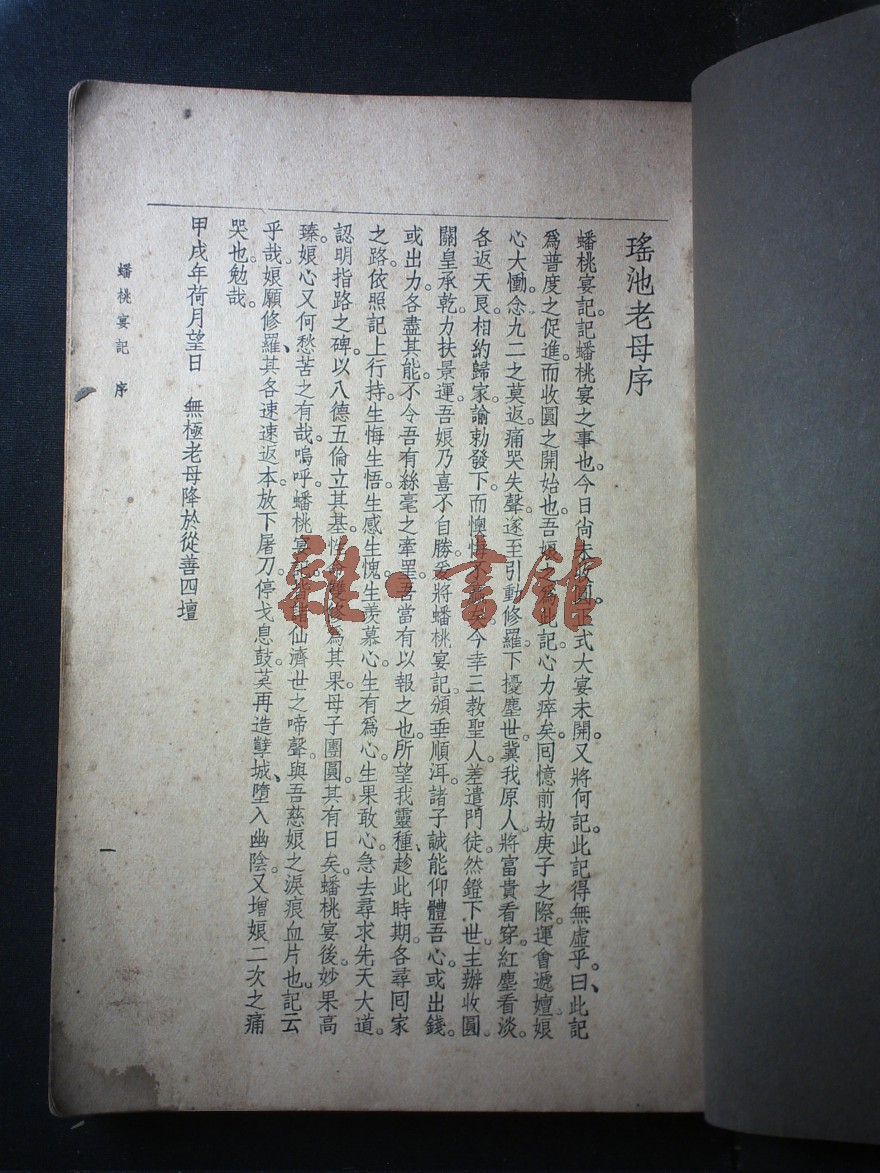 瑤池老母序
蟠桃宴記記蟠桃宴之事也。今日尚未收圓。正式大宴未開。又將何記。此記得無虛乎。曰、此記
爲普度之促進。而收圓之開始也。吾娘之爲此記心力瘁矣。囘憶前劫庚子之際。運會遞嬗。娘
心大慟。念九二之莫返。痛哭失聲。遂至引動修羅。下擾塵世。冀我原人。將富貴看穿。紅塵看淡。
各返天良。相約歸家。諭勅發下。而懊悔不
今幸三教聖人。差遣門徒。然鐙下世。主辦收圓。
關皇承乾。力扶景運。吾娘乃喜不自勝。爰將蟠桃宴記。頒垂順洱。諸子誠能仰體吾心。或出錢。
或出力。各盡其能。不令吾有絲毫之牽罣。吾當有以報之也。所望我靈種、趁此時期。各尋囘家
之路。依照記上行持。生悔生悟。生感生愧。生羨慕心。生有爲心。生果敢心。急去尋求先天大道。
認明指路之碑。以八德五倫立其基。性命雙修爲其果。母子團圓。其有日矣。蟠桃宴後。妙果高
臻。娘心又何愁苦之有哉。嗚呼。蟠桃宴記。皆諸仙濟世之啼聲。與吾慈娘之淚痕血片也。記云
乎哉。娘願修羅、其各速速返本。放下屠刀。停戈息鼓。莫再造孽城、墮入幽陰。又增娘二次之痛
哭也。勉哉。
甲戌年荷月望日　無極老母降於從善四壇
蟠桃宴記　序
一
雜·書館